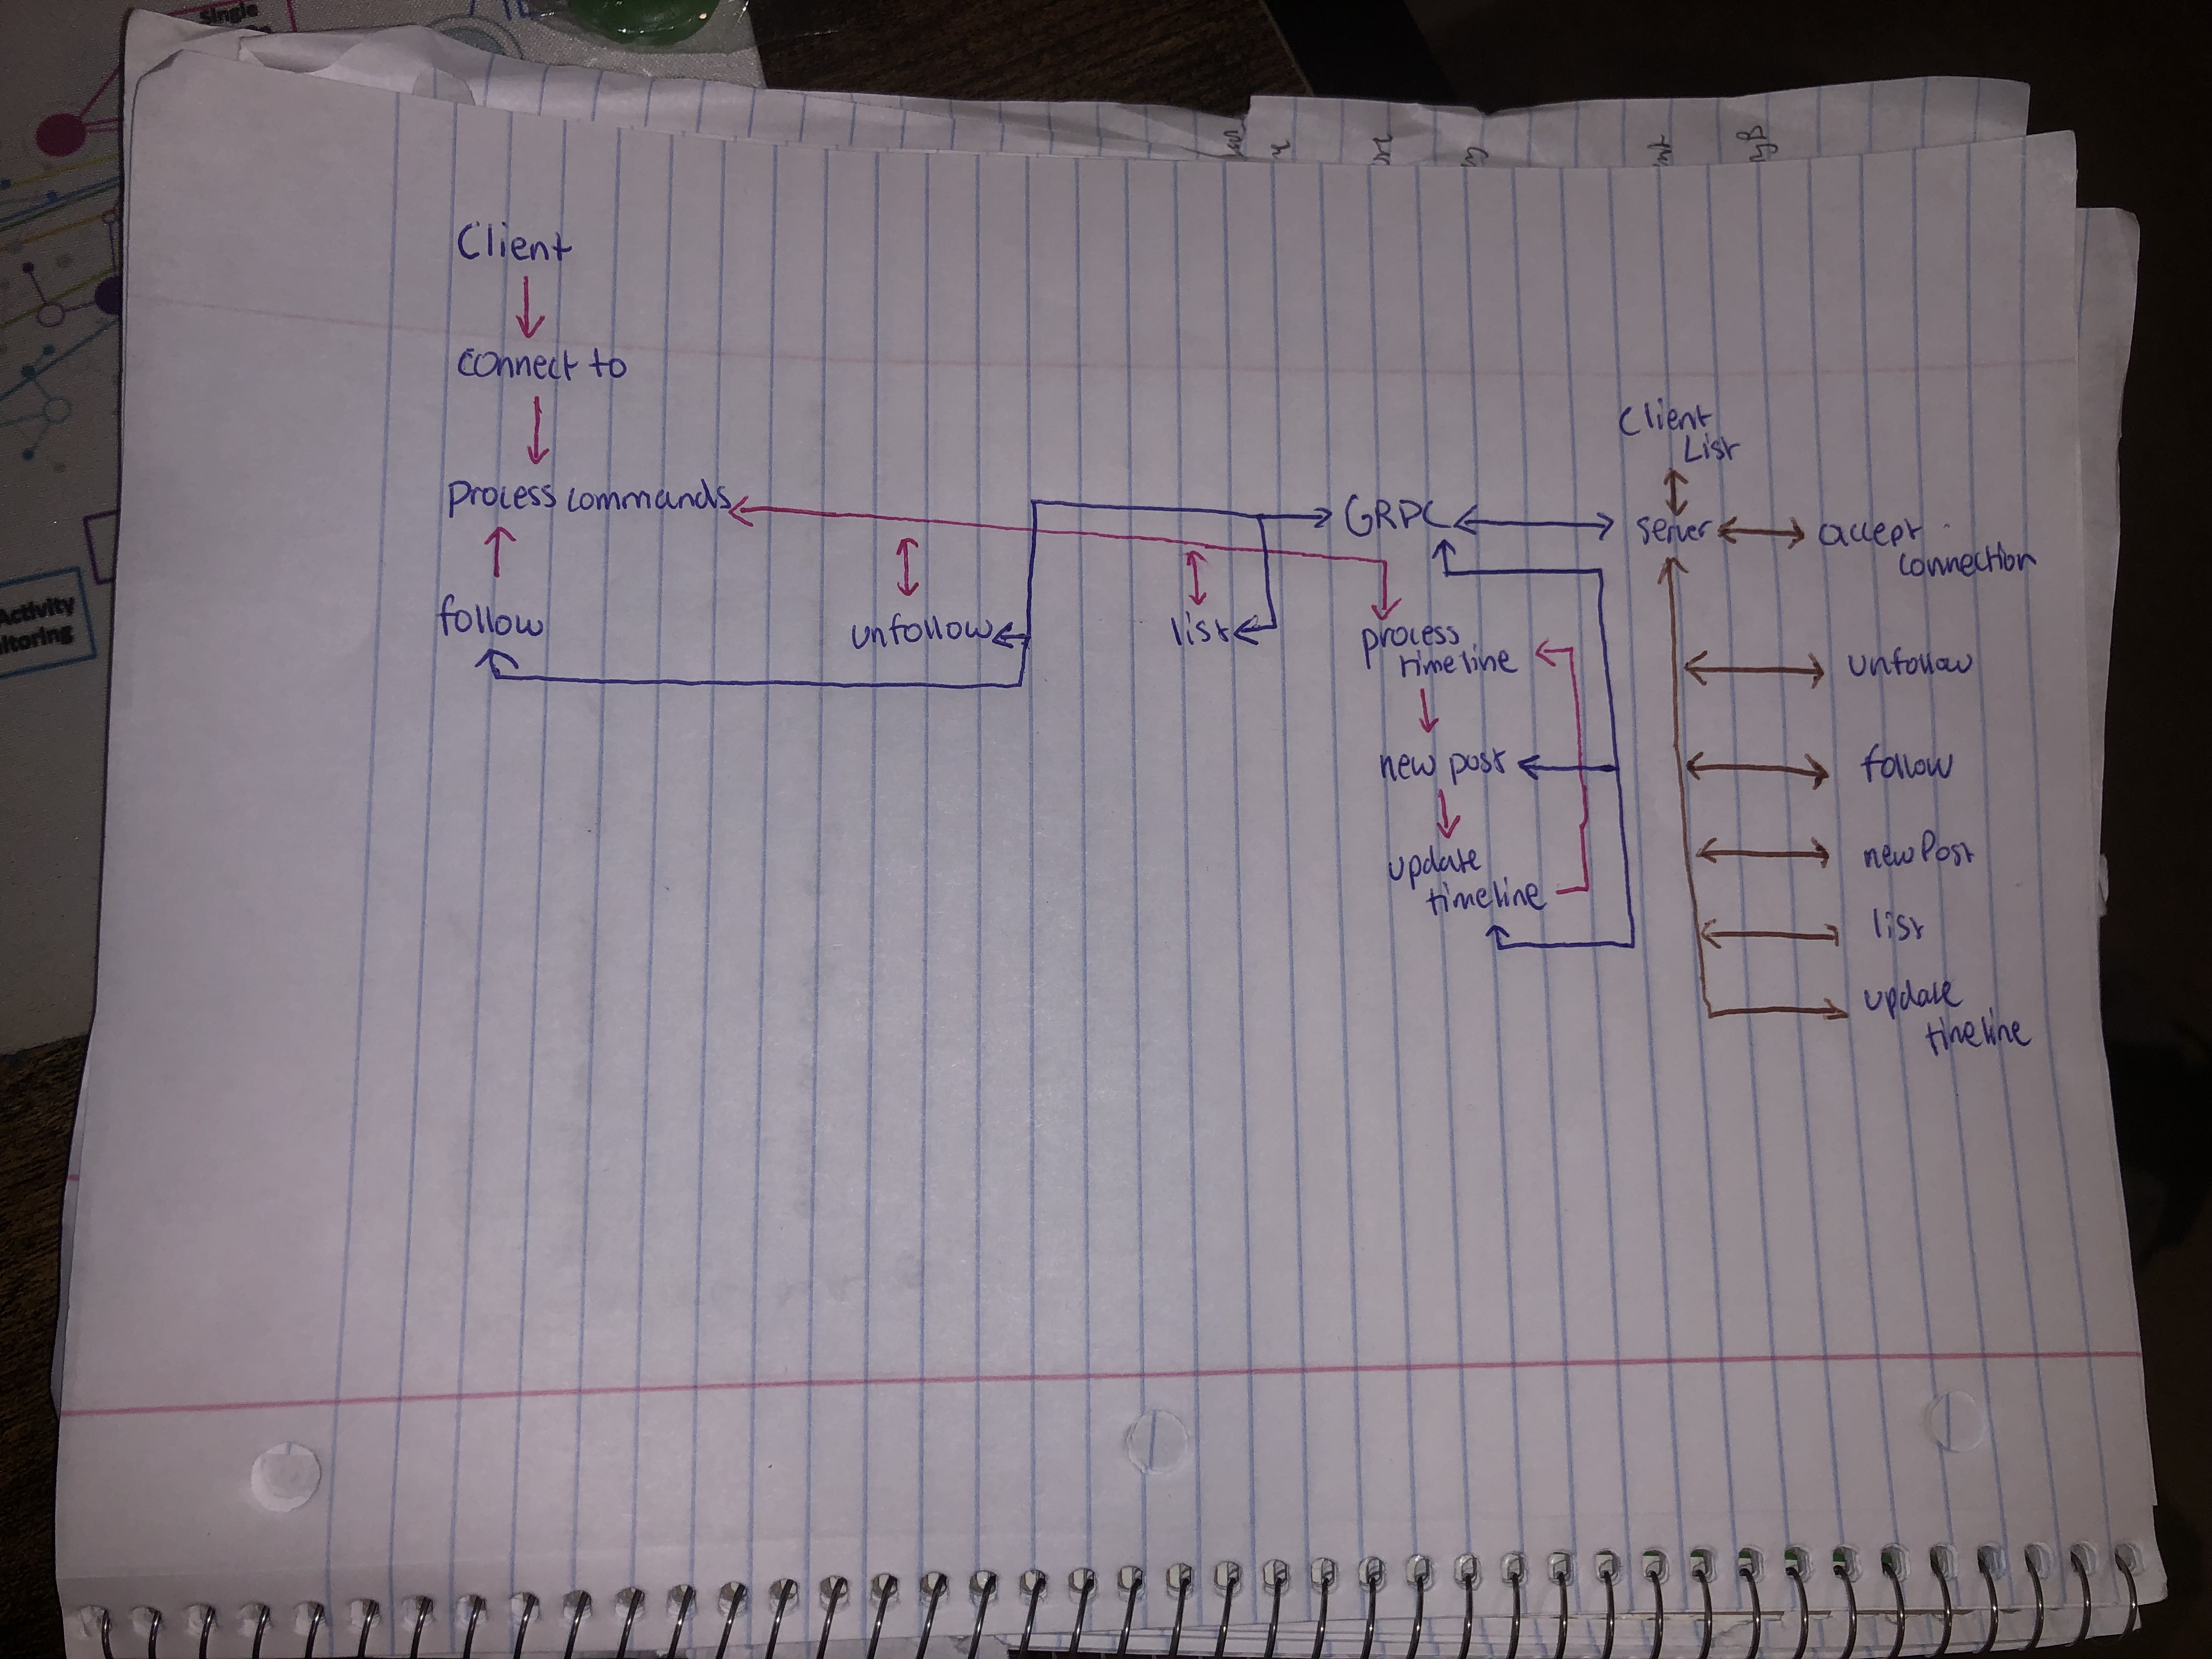 Client
connect to
Process commands
follow
unfollow
list
GRPC
process
timeline
new post
update
timeline
Client
List
server
accept
connection
unfollow
follow
newPost
list
update
timeline
Activity
single